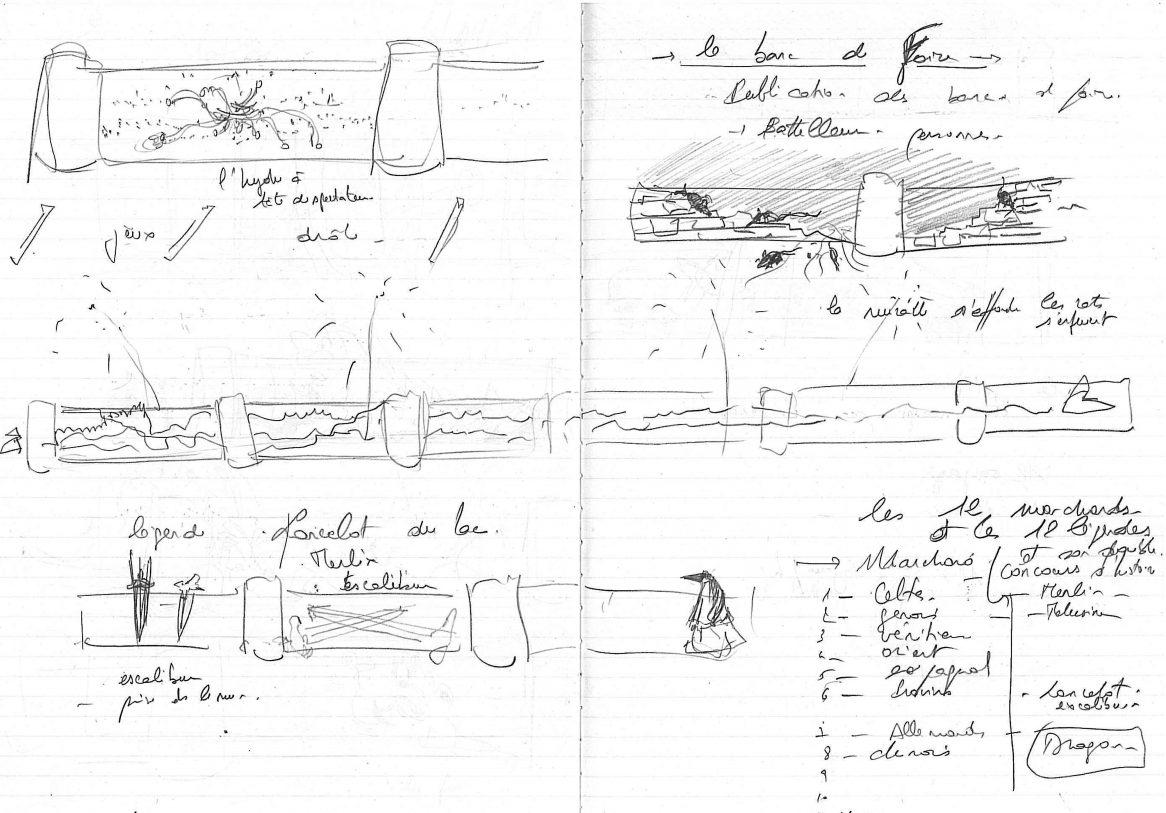 l'hydre à
tête de spectateur
jeux
drôle
légende Lancelot du lac.
Merlin
Escalibur
escalibur
prise de le mur.
→ le banc de foire →
Publication des bancs de foire.
→ Batteleurs personnes
la muraille s'effondre les rats
s'enfuient
les 12 marchands
et les 12 légendes
et son
→ Marchand
concours d'histoire
1 - Celtes - Merlin -
2 - genois - Melusine
3 - vénitien
4 - orient
5 - espagnol
6 -
- Lancelot
escalibur
- Allemands
8 - chinois
Dragon
9
10